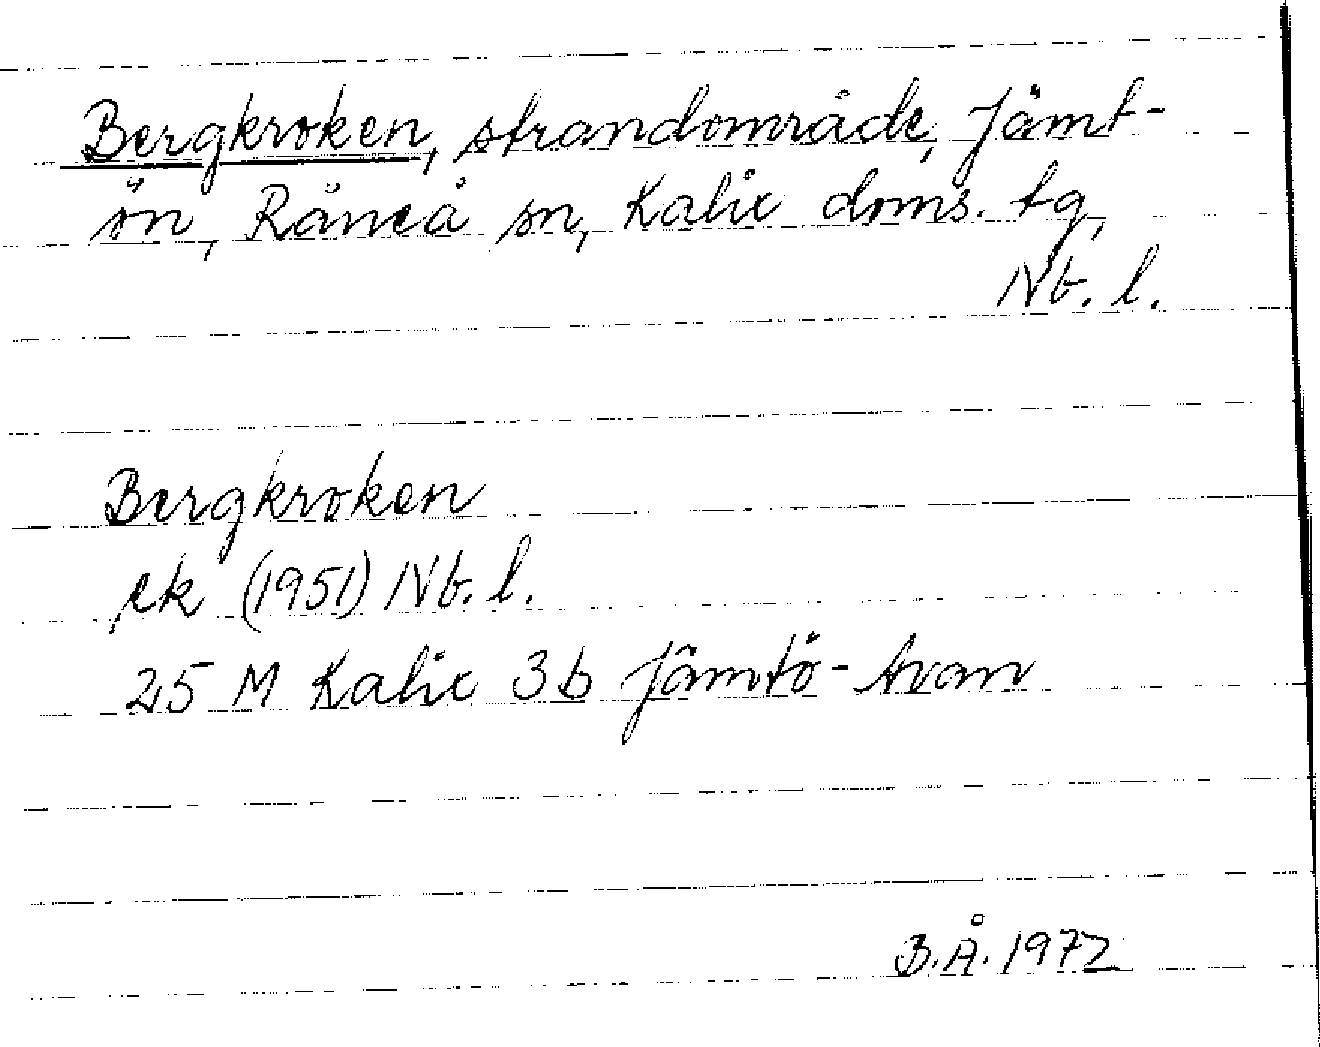 Bergkroken, strandområde, Jämt-
ön, Råneå sn, Kalix doms. tg,
Nb. l.
Bergkroken
ek (1951) Nb. l.
25 M Kalix 3b Jämtö-Avan
B.Å. 1972